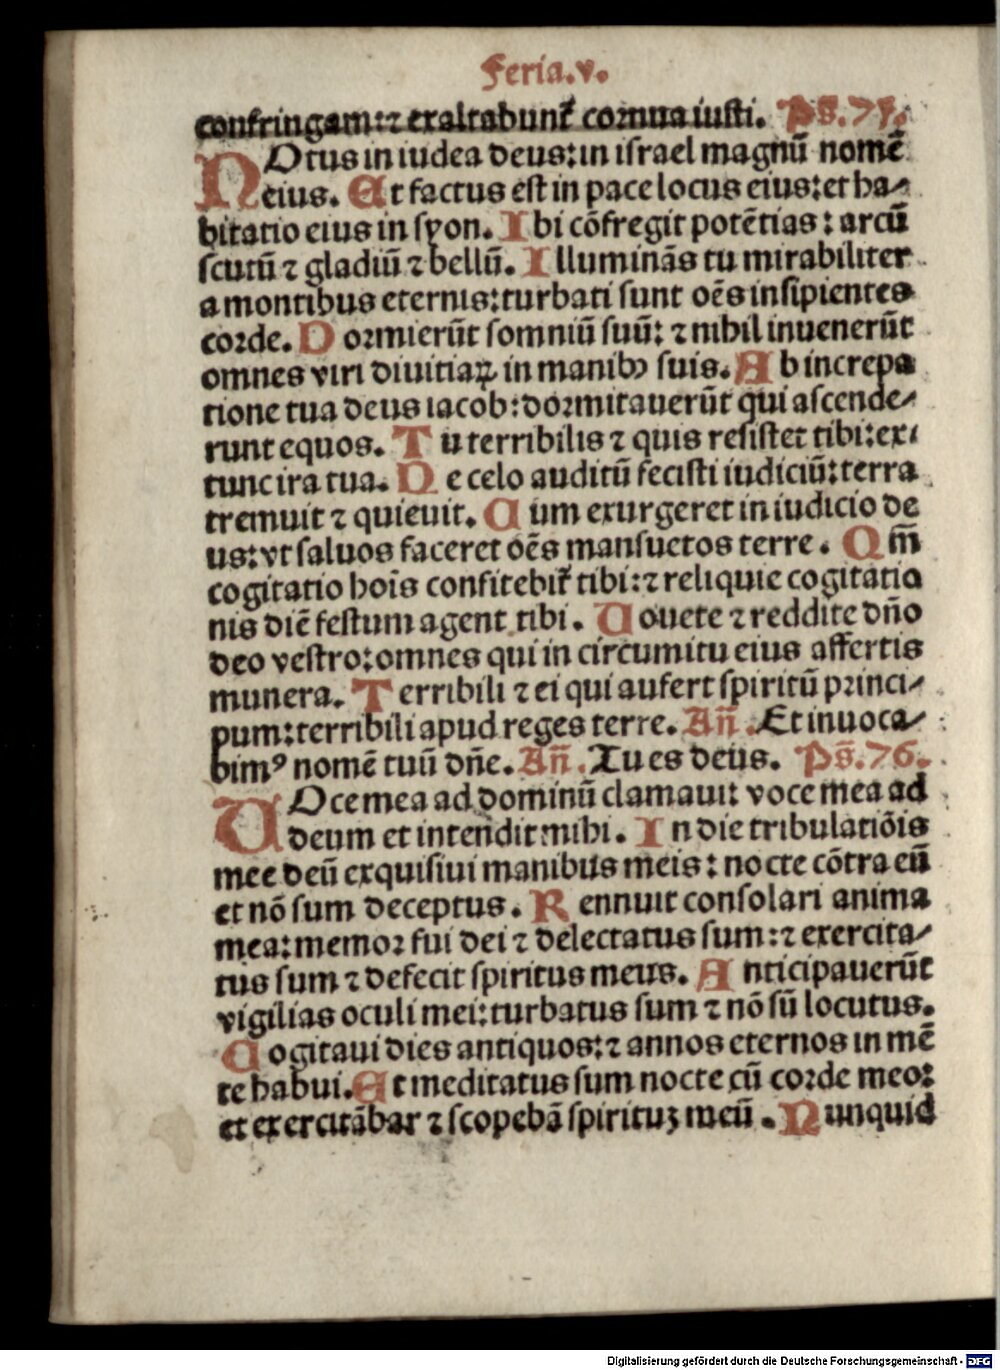 Feria.v.
confringam:⁊ exaltabunt᷑ cornua iusti. Ps̄.75.
NOtus in iudea deus:in israel magnū nomē
eius. Et factus est in pace locus eius:et ha-
bitatio eius in syon. Ibi cōfregit potētias: arcū
scutū ⁊ gladiū ⁊ bellū. Illuminās tu mirabiliter
a montibus eternis:turbati sunt oēs insipientes
corde. Dormierūt somniū suū: ⁊ nihil inuenerūt
omnes viri diuitiaꝝ in manibꝰ suis. Ab increpa
tione tua deus iacob:dormitauerūt qui ascende-
runt equos. Tu terribilis ⁊ quis resistet tibi:ex-
tunc ira tua. De celo auditū fecisti iudiciū:terra
tremuit ⁊ quieuit. Cum exurgeret in iudicio de
us:vt saluos faceret oēs mansuetos terre. Qm̄
cogitatio hoīs confitebit᷑ tibi:⁊ reliquie cogitatio
nis diē festum agent tibi. Uouete ⁊ reddite dño
deo vestro:omnes qui in circumitu eius affertis
munera. Terribili ⁊ ei qui aufert spiritū princi-
pum:terribili apud reges terre. Añ. Et inuoca-
bimꝰ nomē tuū dñe. Añ. Tu es deus. Ps̄.76.
UOce mea ad dominū clamaui: voce mea ad
deum et intendit mihi. In die tribulatiōis
mee deū exquisiui manibus meis: nocte cōtra eū
et nō sum deceptus. Rennuit consolari anima
mea:memor fui dei ⁊ delectatus sum:⁊ exercita-
tus sum ⁊ defecit spiritus meus. Anticipauerūt
vigilias oculi mei:turbatus sum ⁊ nō sū locutus.
Cogitaui dies antiquos:⁊ annos eternos in mē
te habui. Et meditatus sum nocte cū corde meo:
et exercitābar ⁊ scopebā spirituꝫ meū. Nunquid
Digitalisierung gefördert durch die Deutsche Forschungsgemeinschaft - DFG